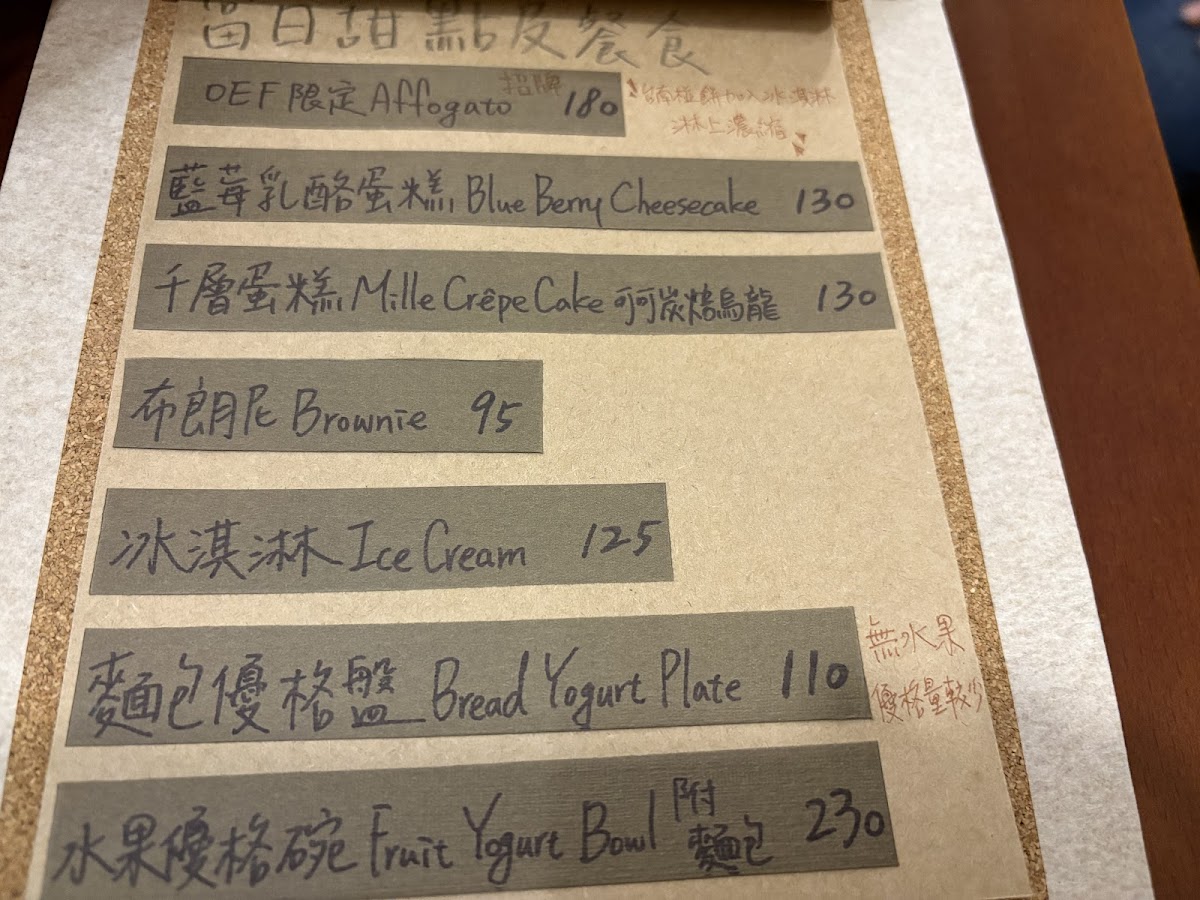 當日甜點及餐食
OEF限定Affogato 招牌 180
加入冰淇淋
淋上濃縮
藍莓乳酪蛋糕 Blue Berry Cheesecake 130
千層蛋糕 Mille Crêpe Cake 可可炭焙烏龍 130
布朗尼 Brownie 95
冰淇淋 Ice Cream 125
麵包優格盤 Bread Yogurt Plate 110
無水果
優格量較少
水果優格碗 Fruit Yogurt Bowl 附麵包 230